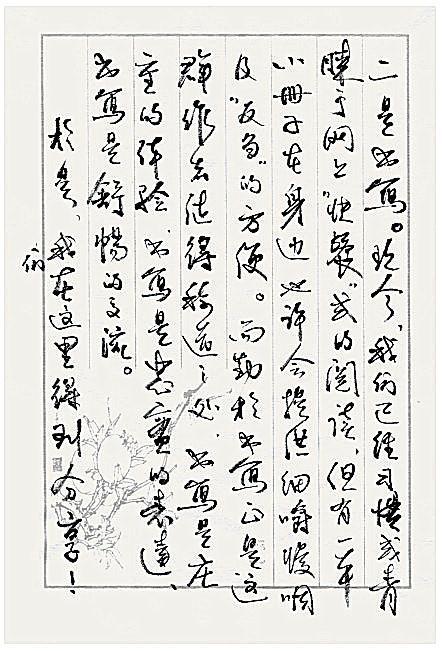 二是书写。现今,我们已经习惯或青
睐于网上“快餐”式的阅读,但有一本
小册子在身边,也许会提供细嚼慢咽
及“反刍”的方便。而勤于书写正是这
群作者值得称道之处,书写是庄
重的体验,书写是忠实的表达、
书写是舒畅的交流。
于是、我们在这里得到分享!